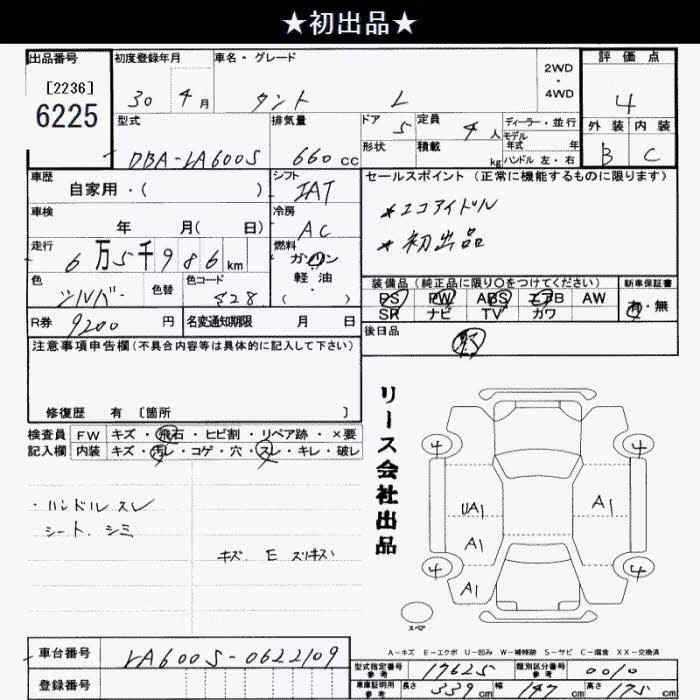 ★初出品★
出品番号
[2236]
6225
初度登録年月
30年4月
車名・グレード
タント L
2WD
・
4WD
評価点
4
外装 内装
B C
型式
DBA-LA600S
排気量
660cc
ドア
5
定員
4人
形状
積載
kg
ディーラー・並行
モデル
年式 年
ハンドル 左・右
車歴
自家用・( )
シフト
IAT
車検
年 月( 日)
冷房
AC
走行
6万5千986km
燃料
ガソリン
軽・油
( )
色
シルバー
色替
色コード
S28
R券
9200円
名変通知期限 月 日
セールスポイント(正常に機能するものに限ります)
*エコアイドル
*初出品
装備品(純正品に限り○をつけてください)
PS PW ABS エアB AW
SR ナビ TV カワ
新車保証書
有・無
後日品
注意事項申告欄(不具合内容等は具体的に記入して下さい)
修復歴 有〔箇所 〕
検査員
記入欄
FW キズ・飛石・ヒビ割・リペア跡・×要
内装 キズ・汚レ・コゲ・穴・スレ・キレ・破レ
・ハンドルスレ
シート、シミ
キズ、E スリキズ
リース会社出品
4 4
UA1 A1
A1
4 4
A1
スペア
A-キズ E-エクボ U-凹み W-補修跡 S-サビ C-腐食 XX-交換済
車台番号
LA600S-0622109
登録番号
型式指定番号
参考
17625
類別区分番号
参考
0010
車庫証明用
参考
長さ 339cm 幅 147cm 高さ 175cm